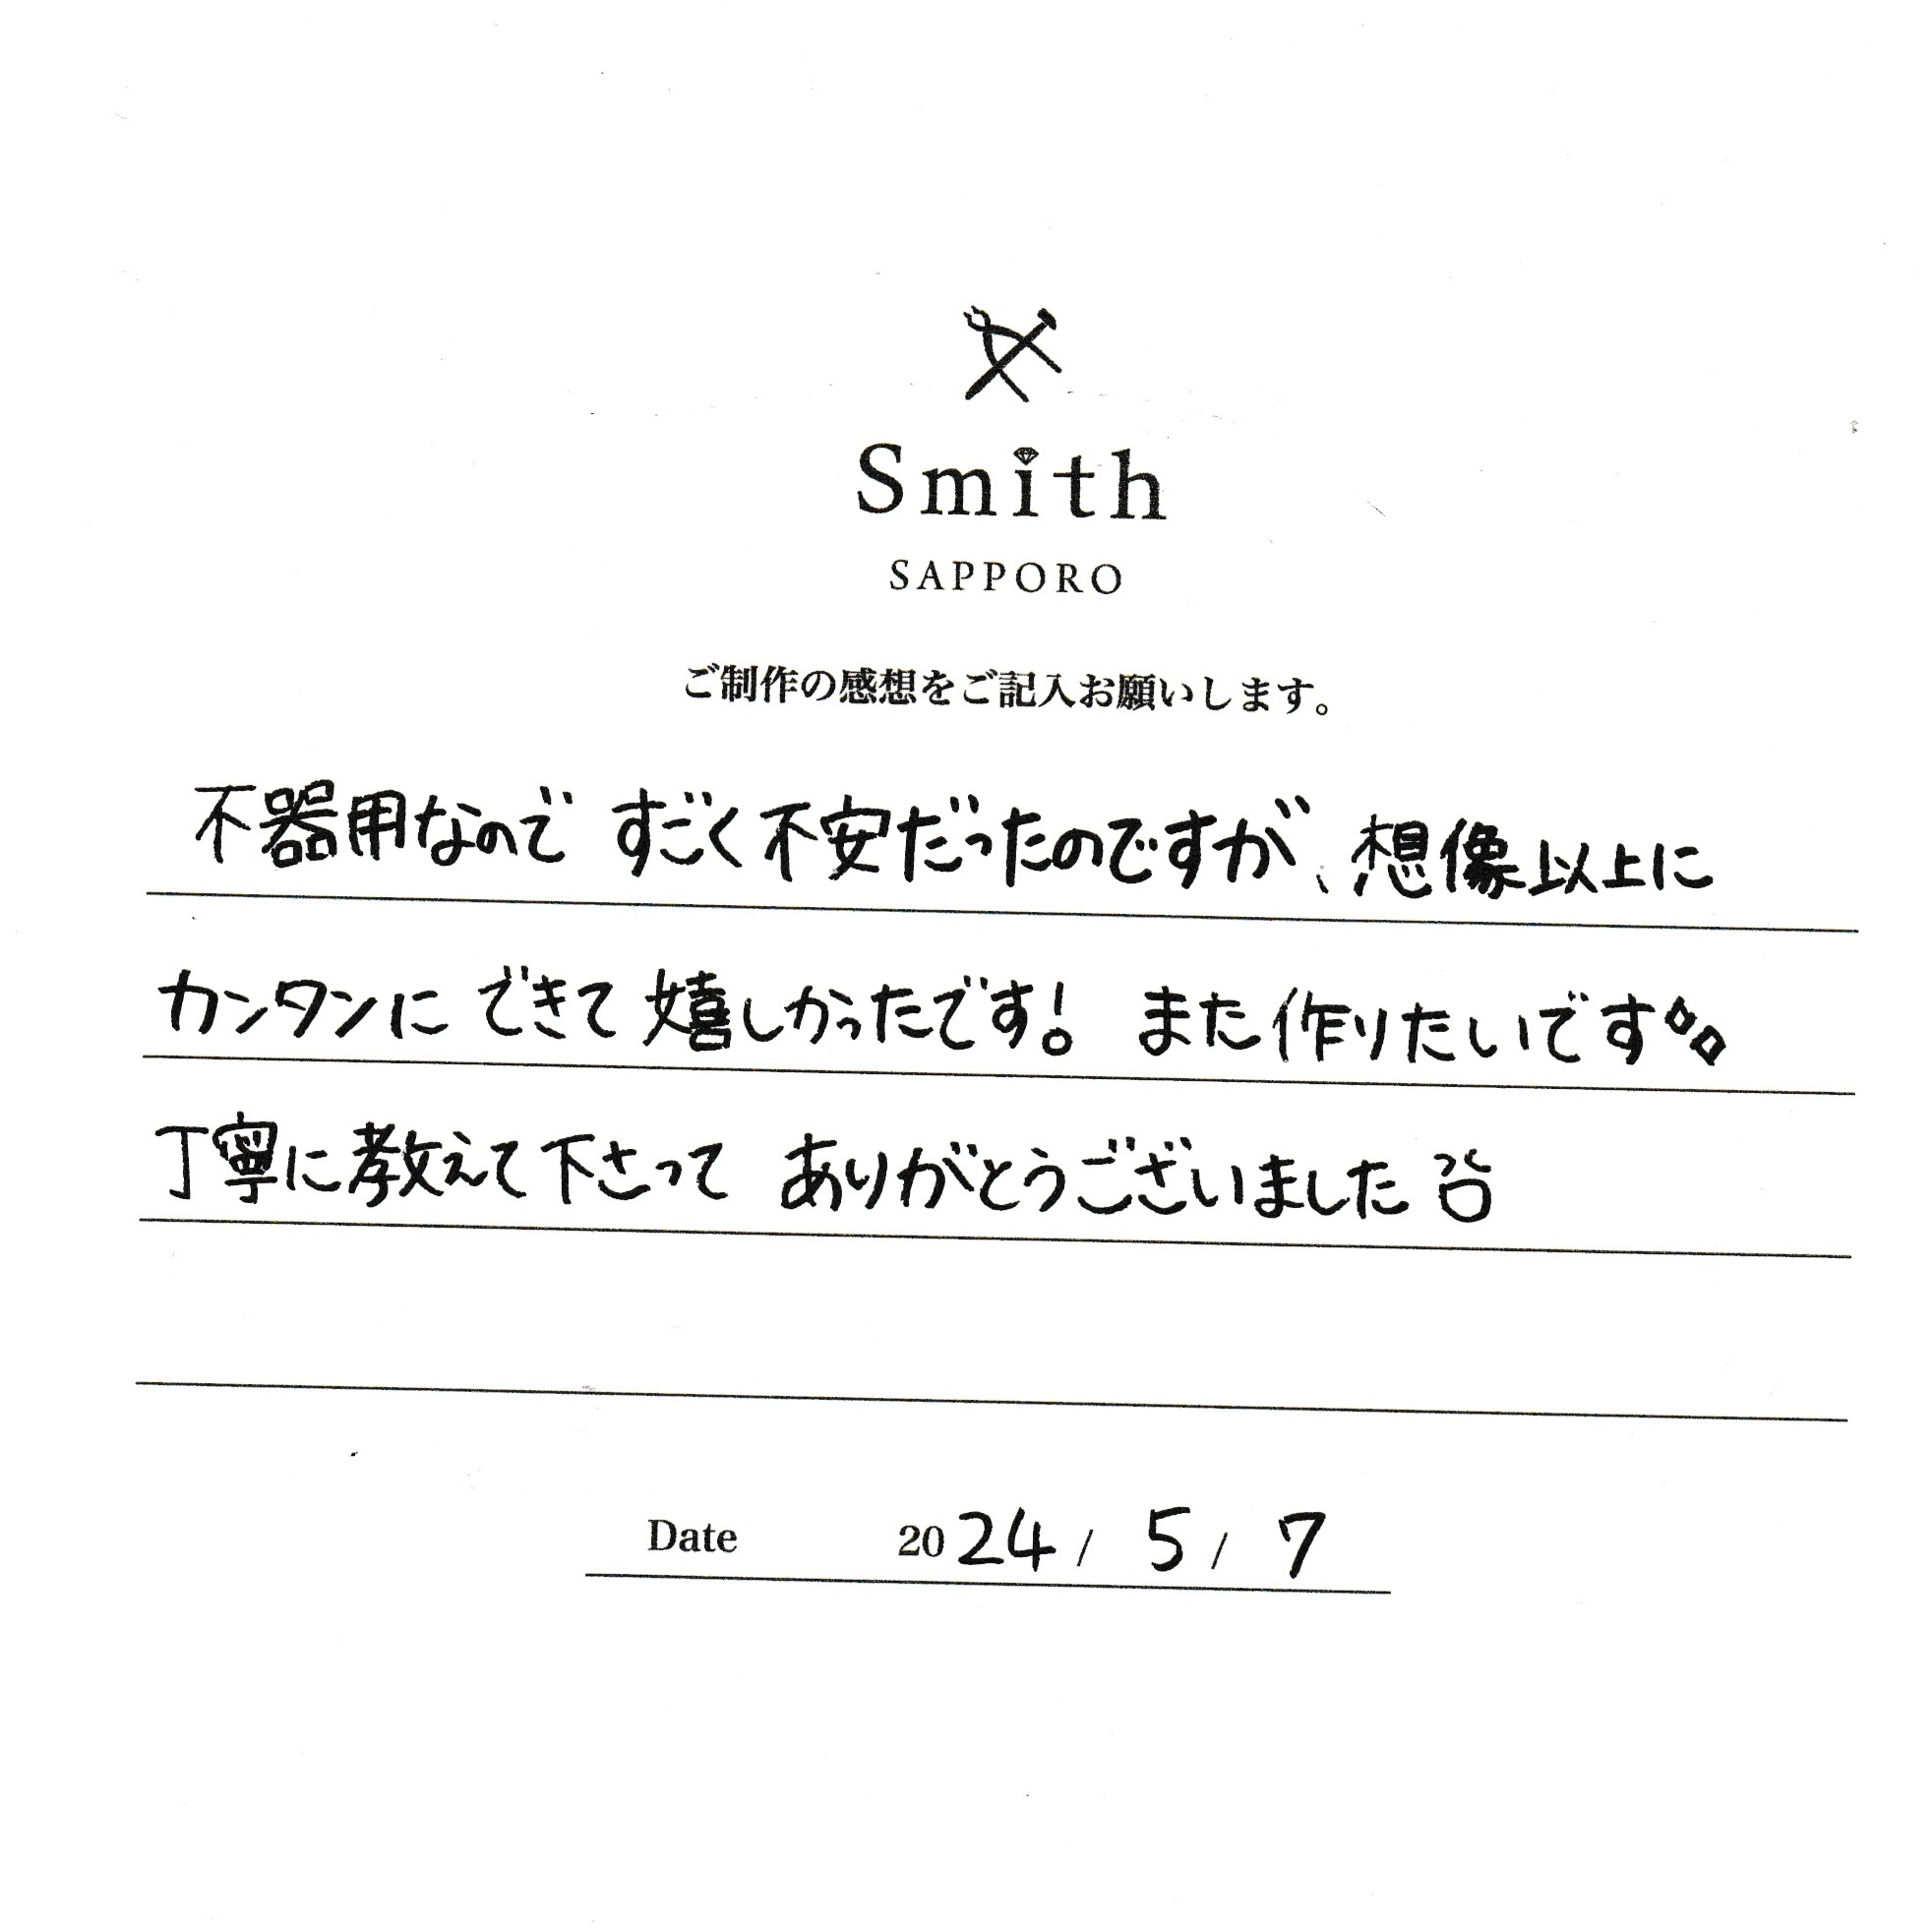 Smith
SAPPORO
ご制作の感想をご記入お願いします。
不器用なので すごく不安だったのですが、想像以上に
カンタンに できて 嬉しかったです! また作りたいです
丁寧に教えて下さって ありがとうございました
Date 2024 / 5 / 7